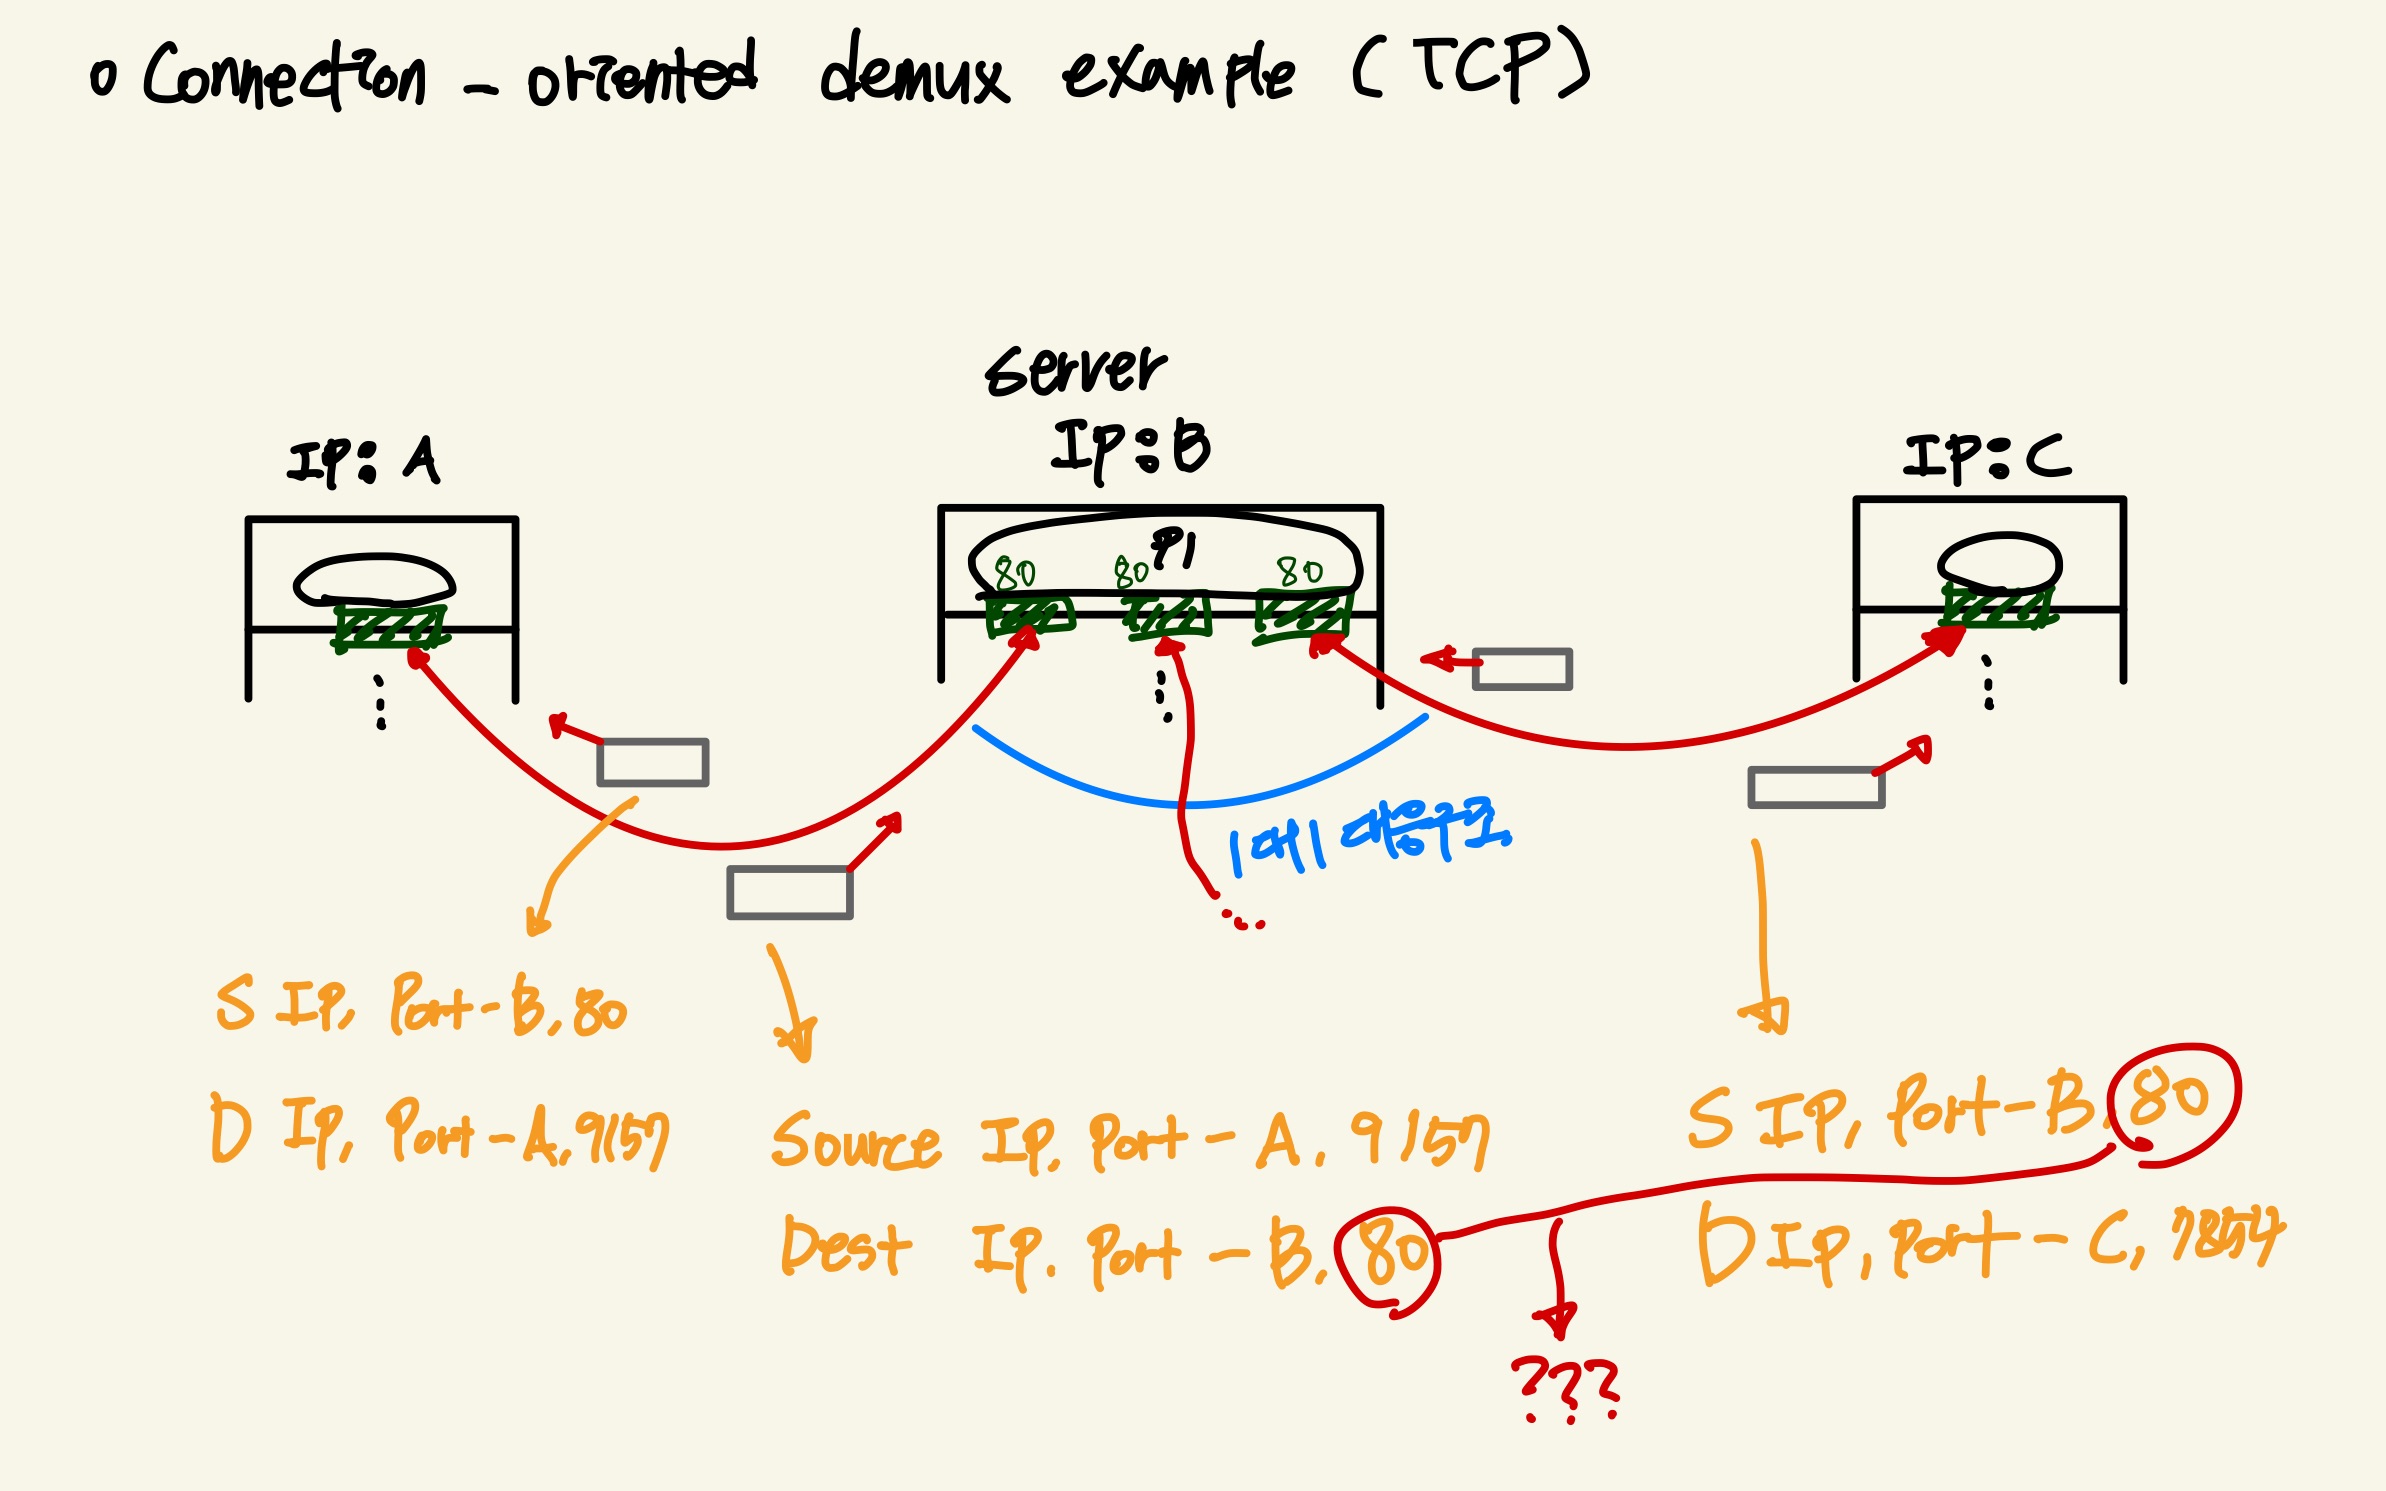 o Connection - oriented demux example (TCP)
Server
IP: A
IP: B
IP: C
P1
80 80 80
S IP, Port - B, 80
D IP, Port - A, 9157
Source IP, Port - A, 9157
Dest IP, Port - B, 80
S IP, Port - B, 80
D IP, Port - C, 7857
???